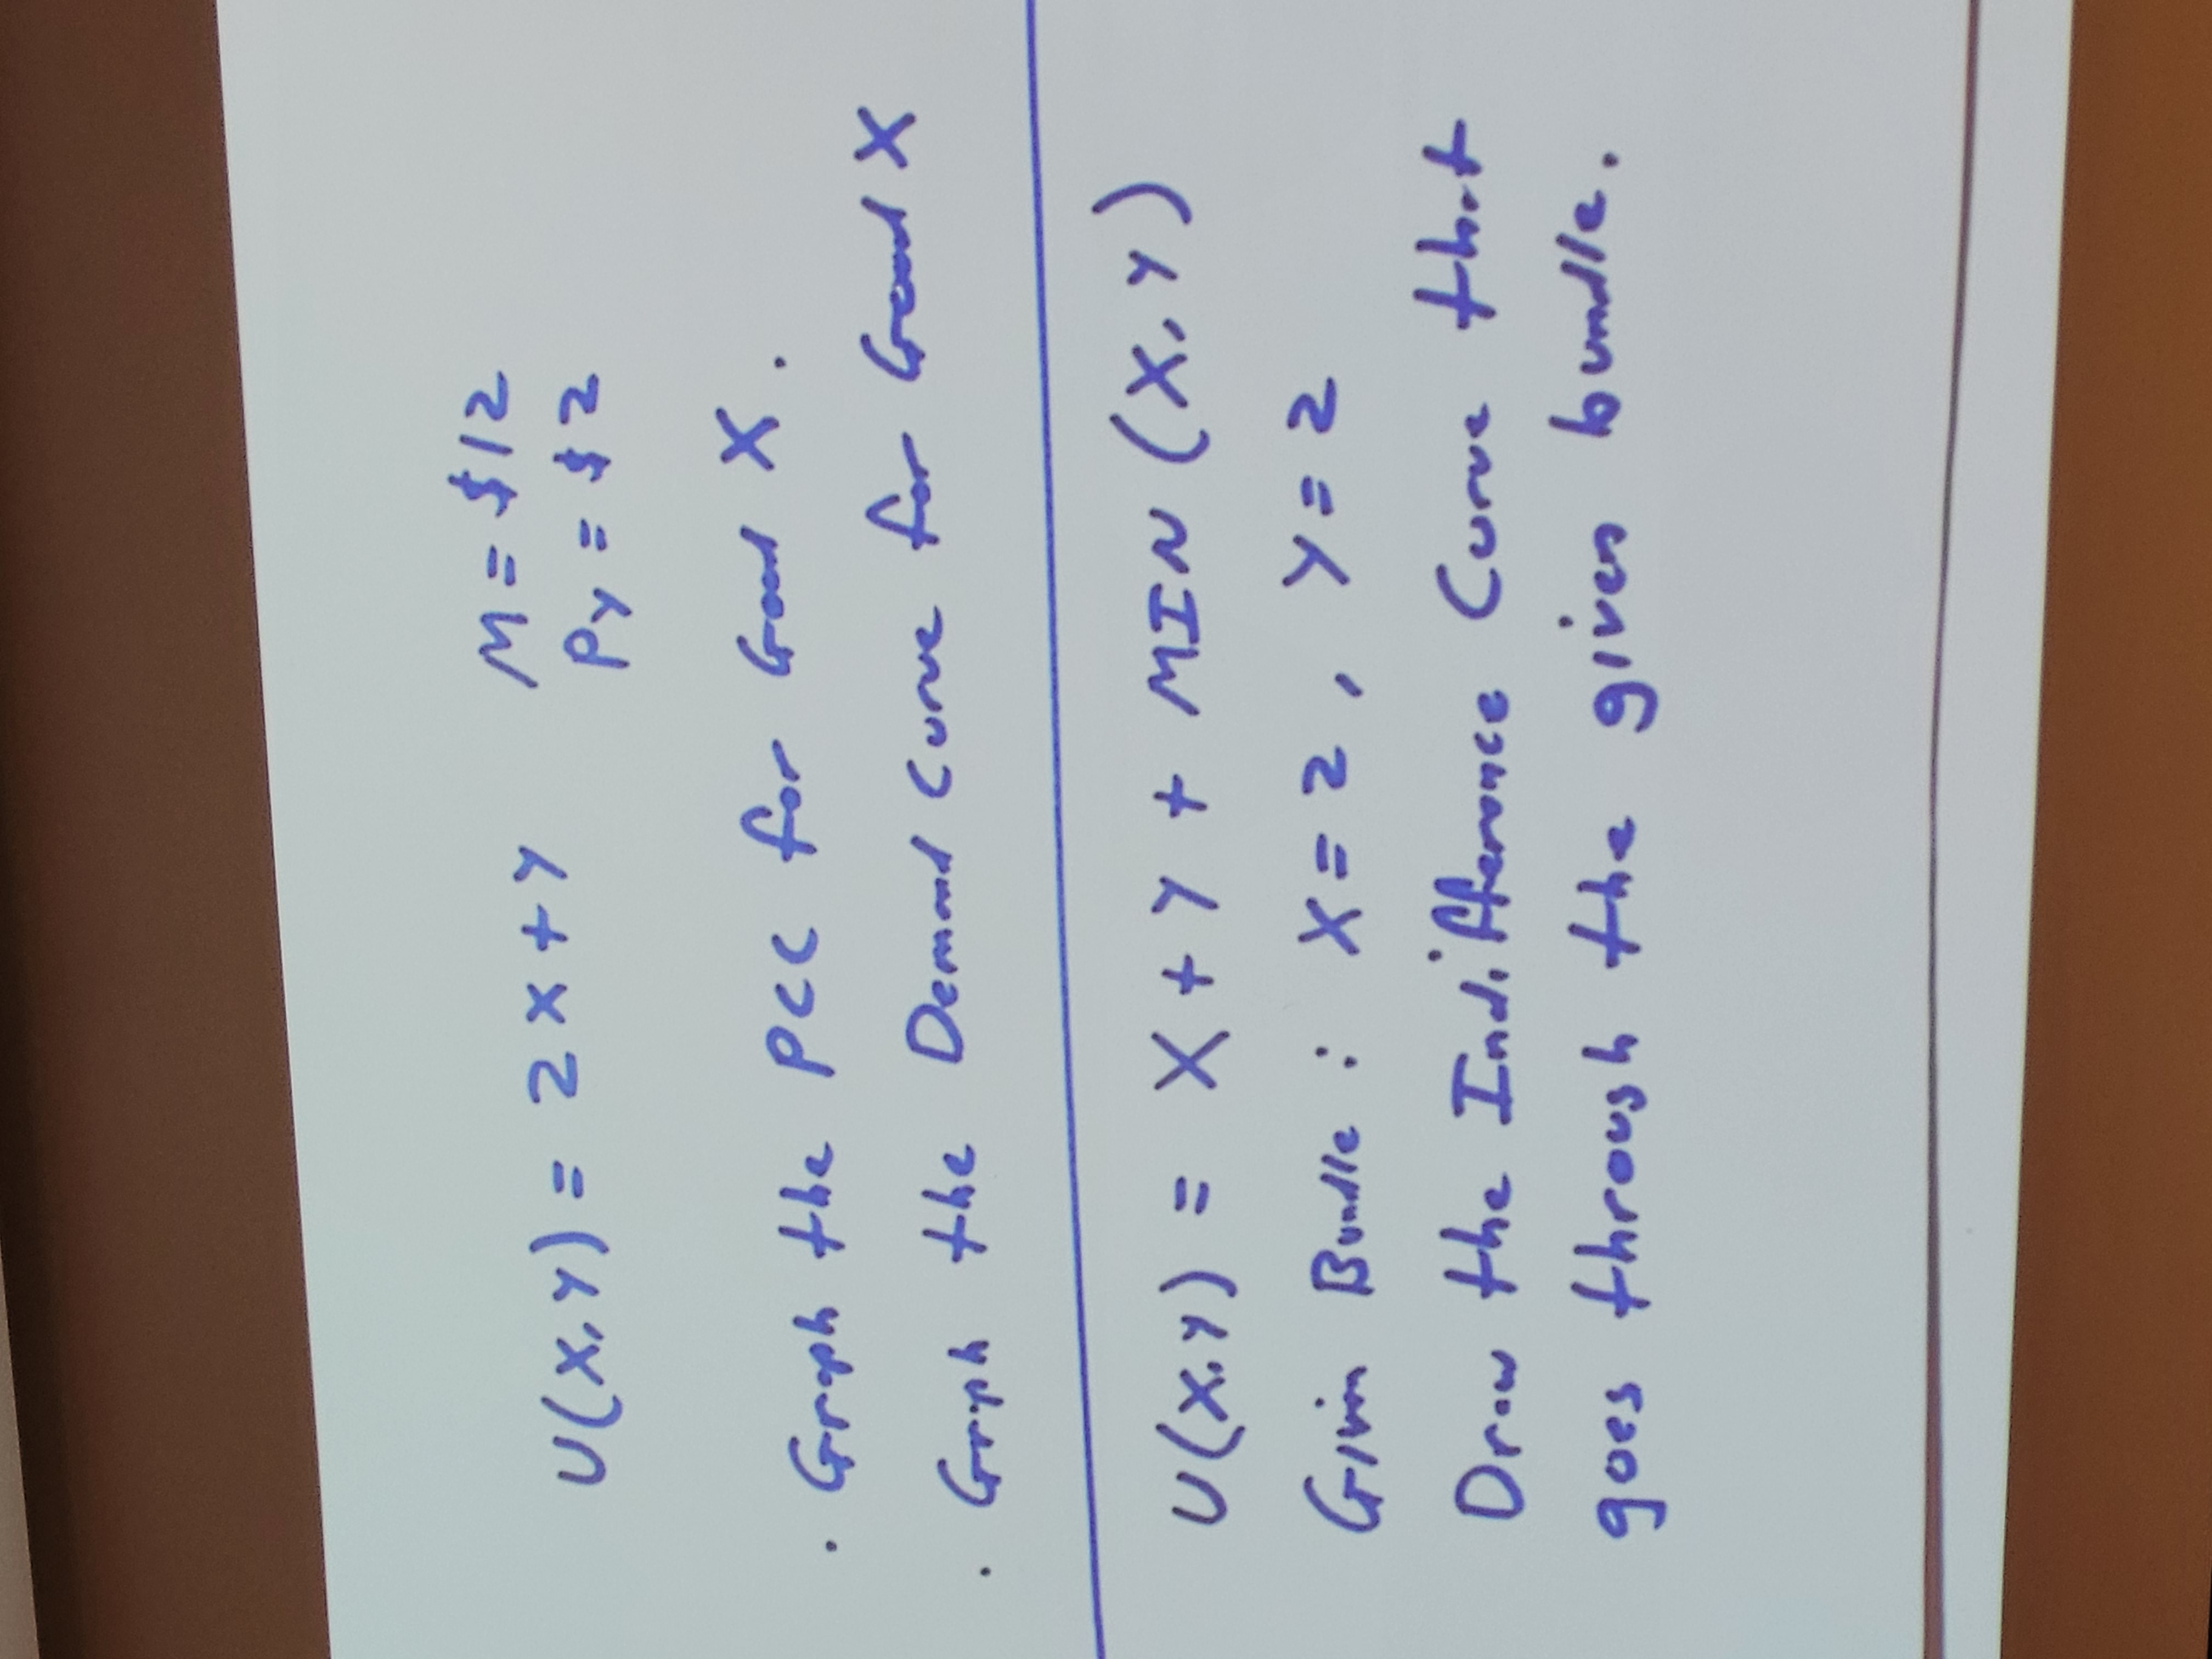 U(X,Y) = 2X+Y M = $12
PY = $2
. Graph the PCC for Good X.
. Graph the Demand Curve for Good X
U(X,Y) = X+Y + MIN (X,Y)
Givin Bundle : X=2, Y=2
Draw the Indifference Curve that
goes through the given bundle.